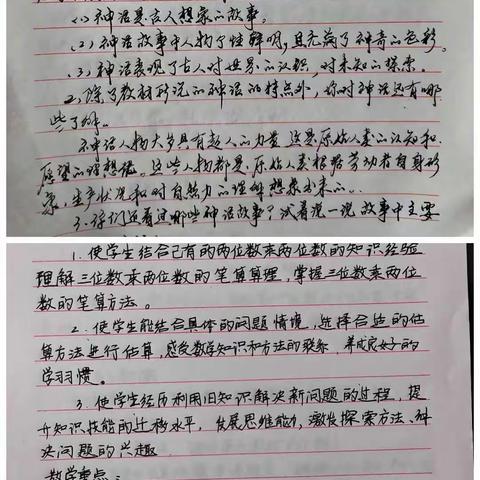 (1)神话是古人想象的故事。
(2)神话故事中人物个性鲜明,且充满了神奇的色彩。
(3)神话表现了古人对世界的认识,对未知的探索。
2、除了教材所说的神话的特点外,你对神话还有哪
些了解。
神话人物大多具有超人的力量,这是原始人类的认知和
愿望的理想化。这些人物都是原始人类根据劳动者自身形
象、生产状况和对自然力的理解想象出来的。
3、你们还看过哪些神话故事?试着说一说故事中主要
1、使学生结合已有的两位数乘两位数的知识经验
理解三位数乘两位数的笔算算理,掌握三位数乘两位
数的笔算方法。
2、使学生能结合具体的问题情境,选择合适的估
算方法进行估算,感受数学知识和方法的联系,养成良好的
学习习惯。
3、使学生经历利用旧知识解决新问题的过程,提
升知识技能的迁移水平,发展思维能力,激发探索方法、解
决问题的兴趣
教学重点: